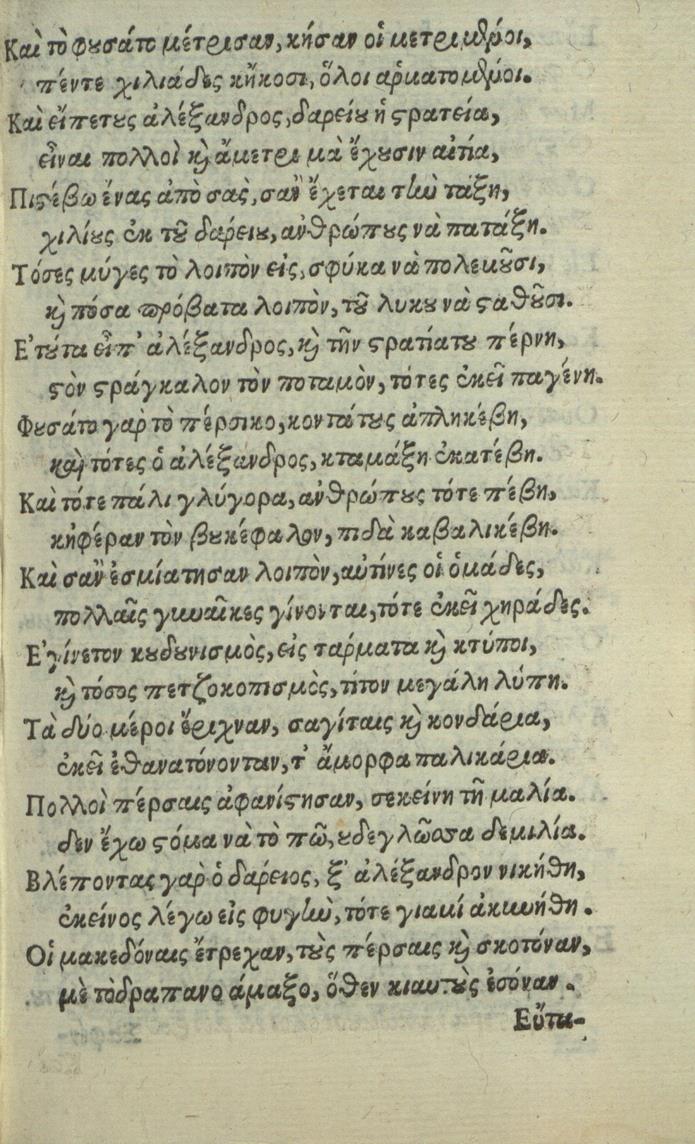 Καὶ τὸ φυσάτο μέτρισαν, κἦσαν οἱ μετριμθμοι,
πέντε χιλιάδες κἤκοσι, ὅλοι αρματομθμοι.
Καὶ εἴπετους αλέξανδρος, δαρείου ἡ στρατεία,
εἶναι πολλοὶ καὶ ἄμετροι μὰ ἔχουσιν αἰτία,
Πιστέβω ἕνας ἀπὸ σας, σαν ἔχεται τὴν τάξη,
χιλίους ἐκ τοῦ δαρείου, ανθρώπους νὰ πατάξη.
Τόσες μύγες τὸ λοιπὸν εἰς, σφύκα νὰ πολεμοῦσι,
καὶ πόσα πρόβατα λοιπὸν, τοῦ λυκου νὰ σταθοῦσι.
Ετούτα εἶπ' αλέξανδρος, καὶ τὴν στρατίατου πέρνη,
στὸν στράγκαλον τὸν ποταμὸν, τότες ἐκεῖ παγένη.
Φουσάτο γαρ τὸ πέρσικο, κοντάτους ἀπληκέβη,
καὶ τότες ὁ αλέξανδρος, κταμάξη ἐκατέβη.
Καὶ τότε πάλι γλύγορα, ανθρώπους τότε πέβη,
κηφέραν τὸν βουκέφαλον, πιδὰ καβαλικέβη.
Καὶ σαν ἐσμίατησαν λοιπὸν, αὐτίνες οἱ ὁμάδες,
πολλαῖς γυναῖκες γίνονται, τότε ἐκεῖ χηράδες.
Εγίνετον κουδουνισμὸς, εἰς τάρματα καὶ κτύποι,
καὶ τόσος πετζοκοπισμὸς, τίτον μεγάλη λύπη.
Τὰ δύο μέροι ἔριχναν, σαγίταις καὶ κονδάρια,
ἐκεῖ ἐθανατόνονταν, τ' ἄμορφα παλικάρια.
Πολλοὶ πέρσαις αφανίστησαν, σεκείνη τῆ μαλία.
δεν ἔχω στόμα νὰ τὸ πῶ, ουδε γλῶσσα δεμιλία.
Βλέποντας γαρ ὁ δαρειος, ξ' αλέξανδρον νικήθη,
ἐκείνος λέγω εἰς φυγὴν, τότε γιαμί ἀκινήθη.
Οἱ μακεδόναις ἔτρεχαν, τοὺς πέρσαις καὶ σκοτόναν,
μὲ τὸ δραπανο ἁμαξο, ὅθεν κιαυτοὺς ἐσόναν.
Εὔτα-